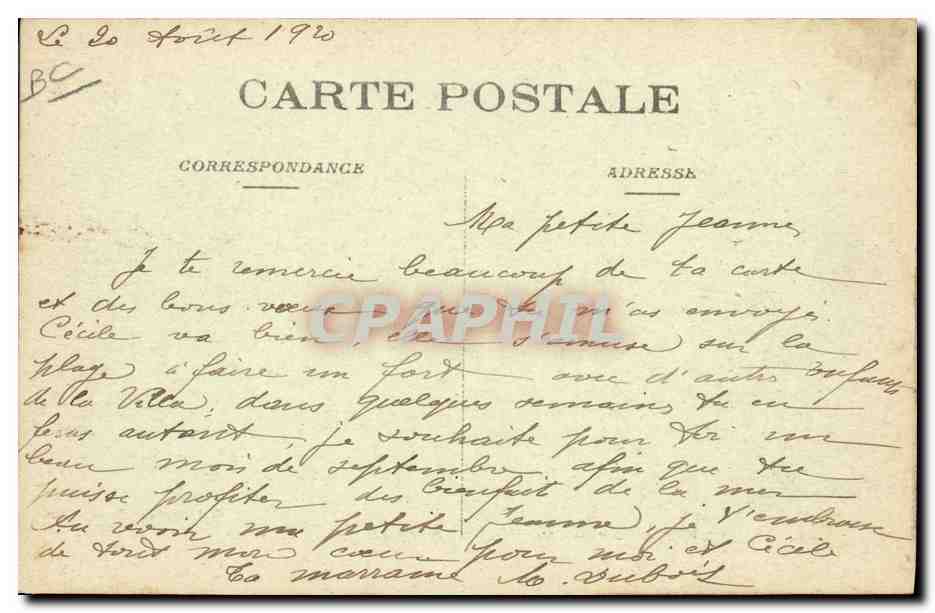 Le 20 Août 1920
BC
CARTE POSTALE
CORRESPONDANCE
ADRESSE
Ma petite Jeanne,
Je te remercie beaucoup de ta carte
et des bons vœux que tu m'as envoyés.
CPAPHIL
Cécile va bien, elle s'amuse sur la
plage à faire un fort avec d'autres enfants
de la Villa, dans quelques semaines tu en
feras autant, je souhaite pour toi un
beau mois de septembre afin que tu
puisse profiter des bienfait de la mer
Au revoir ma petite Jeanne, je t'embrasse
de tout mon cœur pour moi et Cécile
Ta marraine M. Dubois